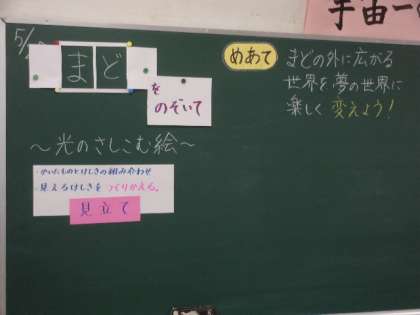 5/
まど
を
のぞいて
～光のさしこむ絵～
・かいたものとけしきの組み合わせ
・見えるけしきをつくりかえる。
見立て
めあて
まどの外に広がる
世界を夢の世界に
楽しく変えよう!
宇宙一